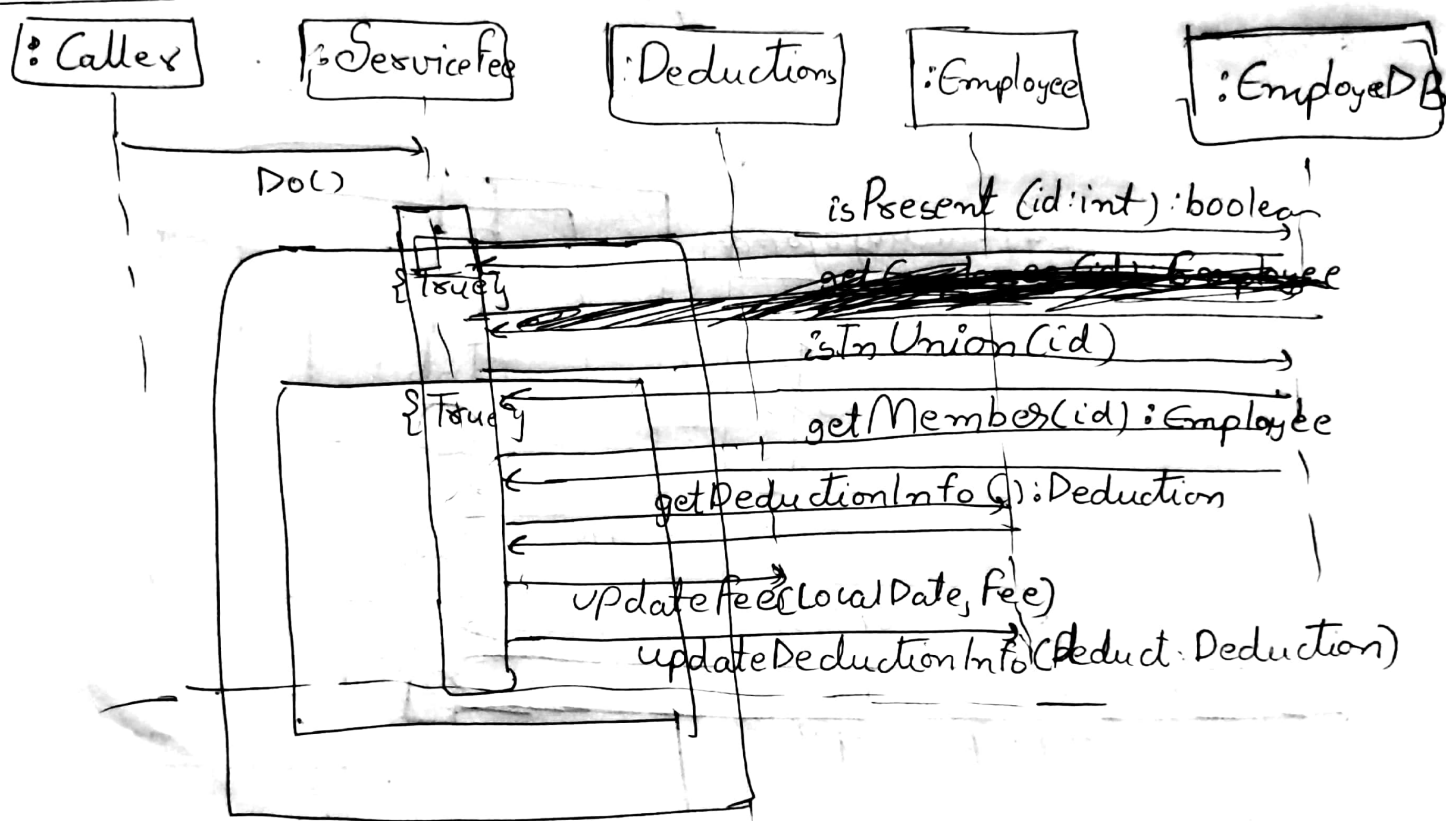 :Caller
:ServiceFee
:Deductions
:Employee
:EmployeDB
DO()
isPresent (id:int):boolean
{True}
Employee
isInUnion(id)
{True}
getMember(id):Employee
getDeductionInfo():Deduction
updateFee(LocalDate, Fee)
updateDeductionInfo(Deduct:Deduction)